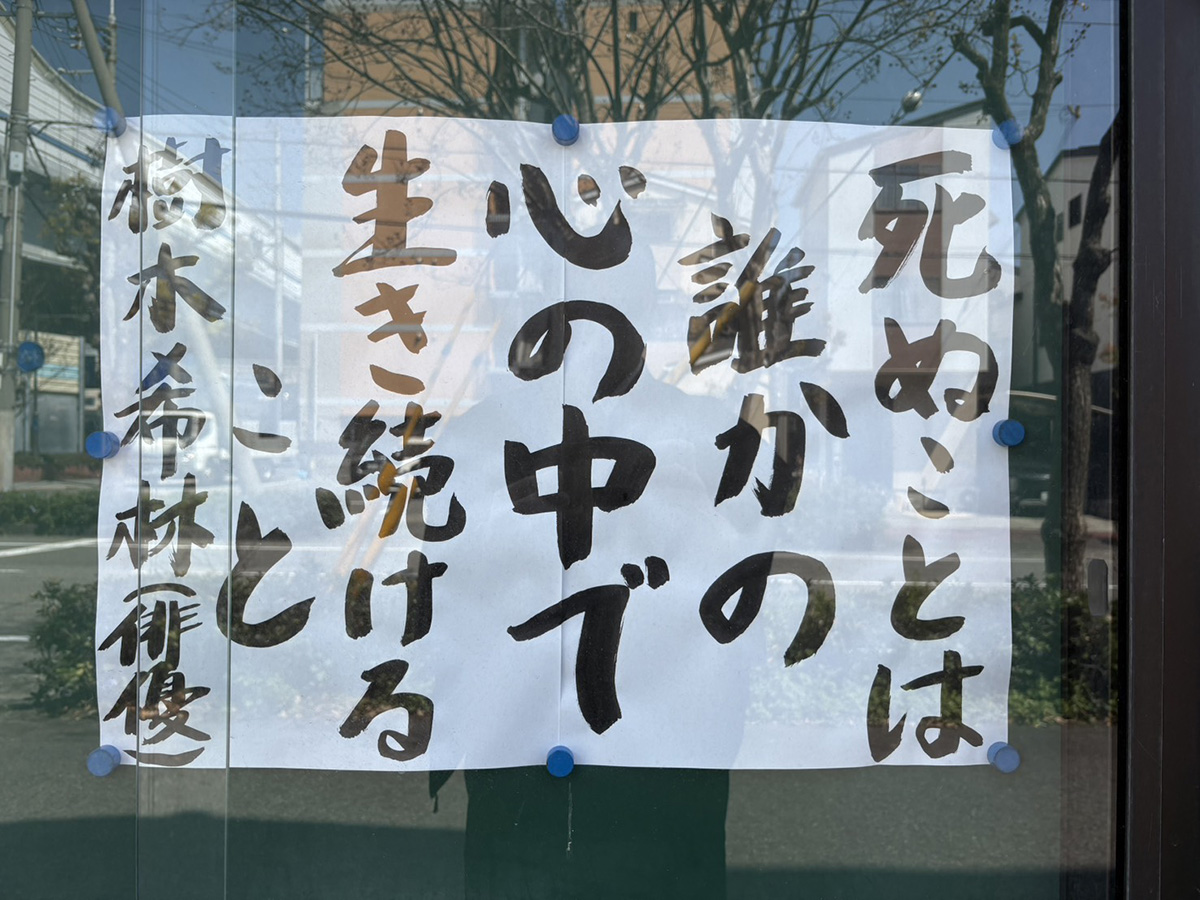 死ぬことは
誰かの
心の中で
生き続ける
こと
樹木希林(俳優)